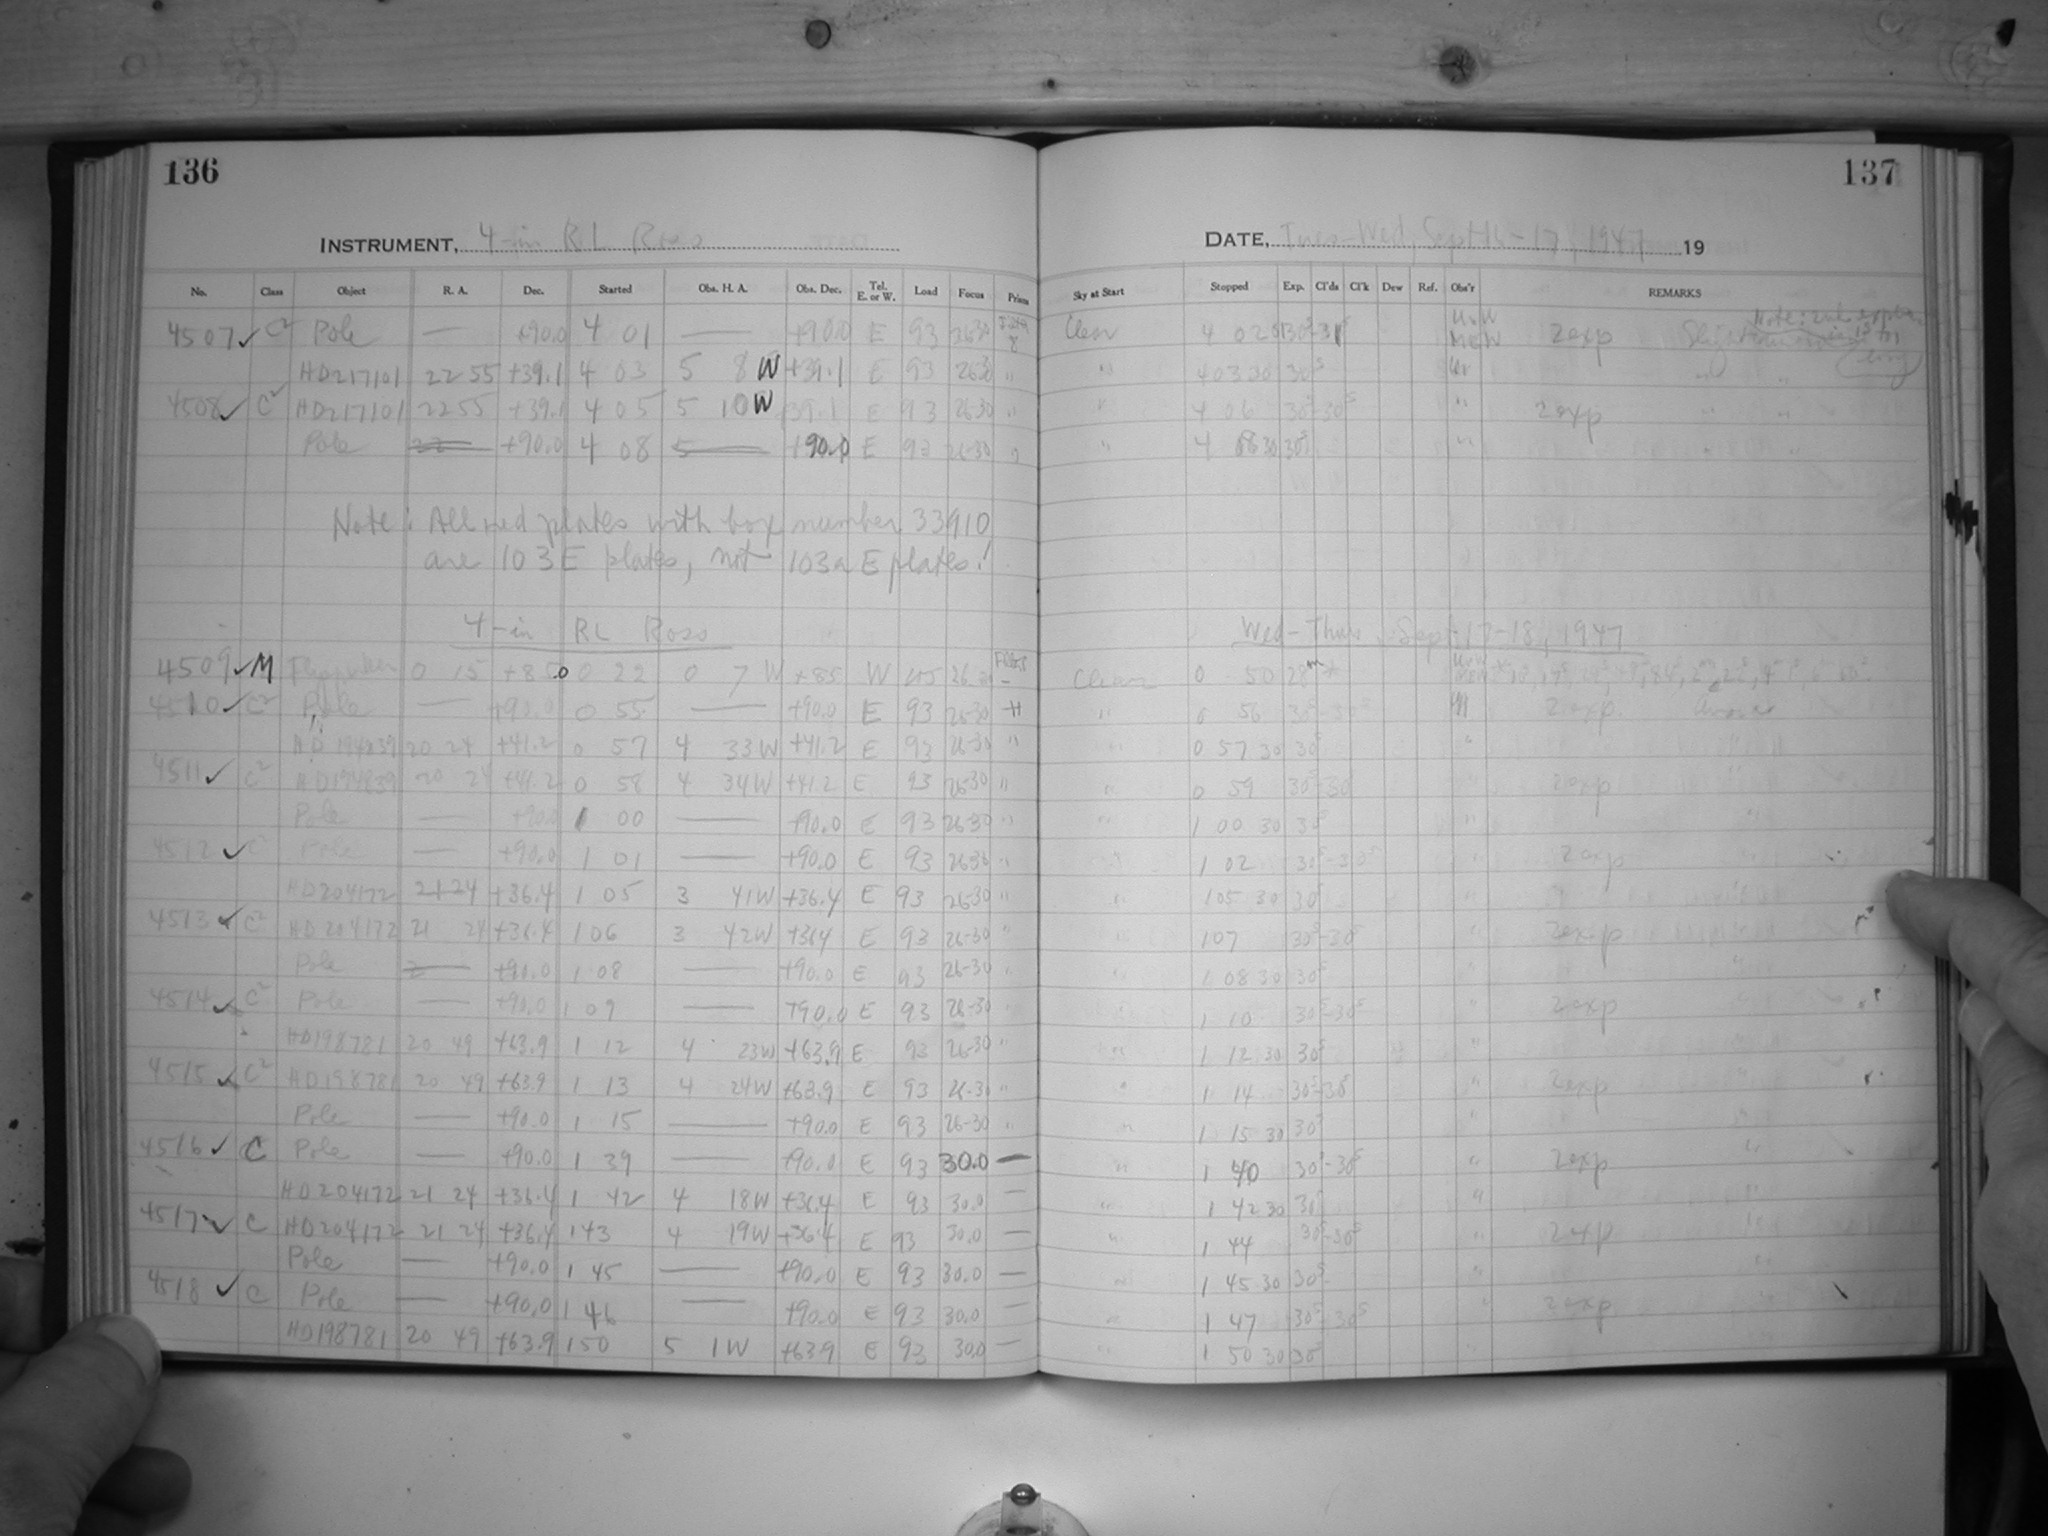 136
137
INSTRUMENT, 4-in RL Ross
DATE, Tues-Wed, Sept 16-17, 1947 19
No. Class Object R. A. Dec. Started Obs. H. A. Obs. Dec. Tel. E. or W. Load Focus Prism Sky at Start Stopped Exp. Cl'ds Cl'k Dew Ref. Obs'r REMARKS
4507 ✓ C² Pole — +90.0 4 01 — +90.0 E 93 26-30 Clear 4 02 2exp
HD217101 22 55 +39.1 4 03 5 8W +39.1 E 93 26-30 " " 4 03 30 30s
4508 ✓ C² HD217101 22 55 +39.1 4 05 5 10W +39.1 E 93 26-30 " " 4 06 30s-30s " 2exp " "
Pole +90.0 4 08 — +90.0 E 93 26-30 " " 4 08 30 30s " "
Note: All red plates with box number 33910
are 103E plates, not 103a E plates!
4-in RL Ross Wed-Thurs, Sept 17-18, 1947
4509 ✓ M 0 15 +85.0 0 22 0 7 W +85 W 45 Clear 0 50 28m
4510 ✓ C² Pole — +90.0 0 55 — +90.0 E 93 26-30 " 0 56 30s-30s 2exp
HD 194839 20 24 +41.2 0 57 4 33W +41.2 E 93 26-30 " " 0 57 30 30s "
4511 ✓ C² HD194839 20 24 +41.2 0 58 4 34W +41.2 E 93 26-30 " " 0 59 30s-30s " 2exp "
Pole — +90.0 1 00 — +90.0 E 93 26-30 " " 1 00 30 30s " "
4512 ✓ C² Pole — +90.0 1 01 — +90.0 E 93 26-30 " " 1 02 30s-30s " 2exp "
HD204172 21 24 +36.4 1 05 3 41W +36.4 E 93 26-30 " " 1 05 30 30s " "
4513 ✓ C² HD204172 21 24 +36.4 1 06 3 42W +36.4 E 93 26-30 " " 1 07 30s-30s " 2exp "
Pole — +90.0 1 08 — +90.0 E 93 26-30 " " 1 08 30 30s " "
4514 ✓ C² Pole — +90.0 1 09 — +90.0 E 93 26-30 " " 1 10 30s-30s " 2exp "
HD198781 20 49 +63.9 1 12 4 23W +63.9 E 93 26-30 " " 1 12 30 30s " "
4515 ✓ C² HD198781 20 49 +63.9 1 13 4 24W +63.9 E 93 26-30 " " 1 14 30s-30s " 2exp "
Pole — +90.0 1 15 — +90.0 E 93 26-30 " " 1 15 30 30s " "
4516 ✓ C Pole — +90.0 1 39 — +90.0 E 93 30.0 — " 1 40 30s-30s " 2exp "
HD204172 21 24 +36.4 1 42 4 18W +36.4 E 93 30.0 — " 1 42 30 30s " "
4517 ✓ C HD204172 21 24 +36.4 1 43 4 19W +36.4 E 93 30.0 — " 1 44 30s-30s " 2exp "
Pole — +90.0 1 45 — +90.0 E 93 30.0 — " 1 45 30 30s " "
4518 ✓ C Pole — +90.0 1 46 — +90.0 E 93 30.0 — " 1 47 30s-30s " 2exp "
HD198781 20 49 +63.9 1 50 5 1W +63.9 E 93 30.0 — " 1 50 30 30s " "